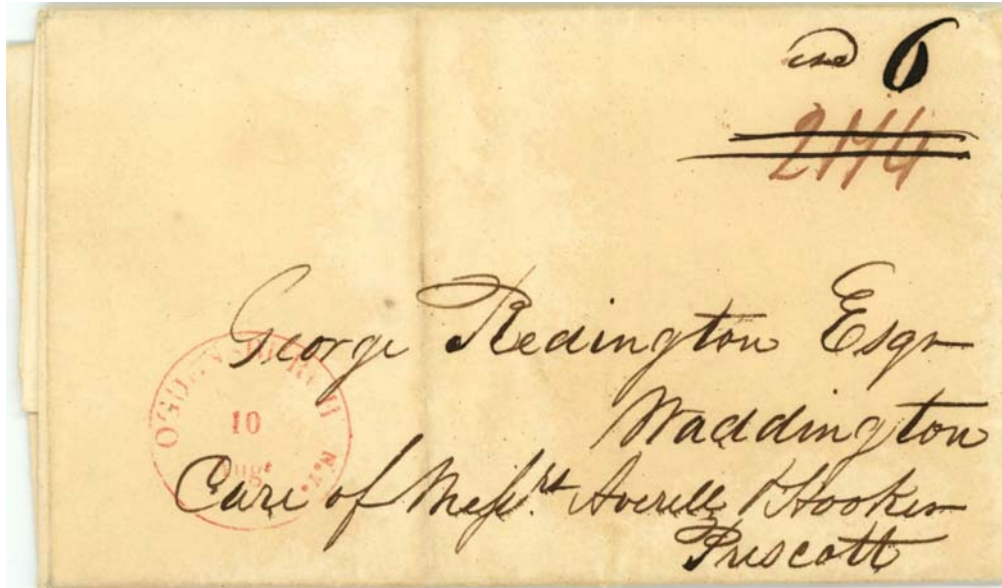 6
George Redington Esqr
Waddington
Care of Messrs. Averell & Hooker
Prescott
OGDENSBURGH N.Y.
10
Augt